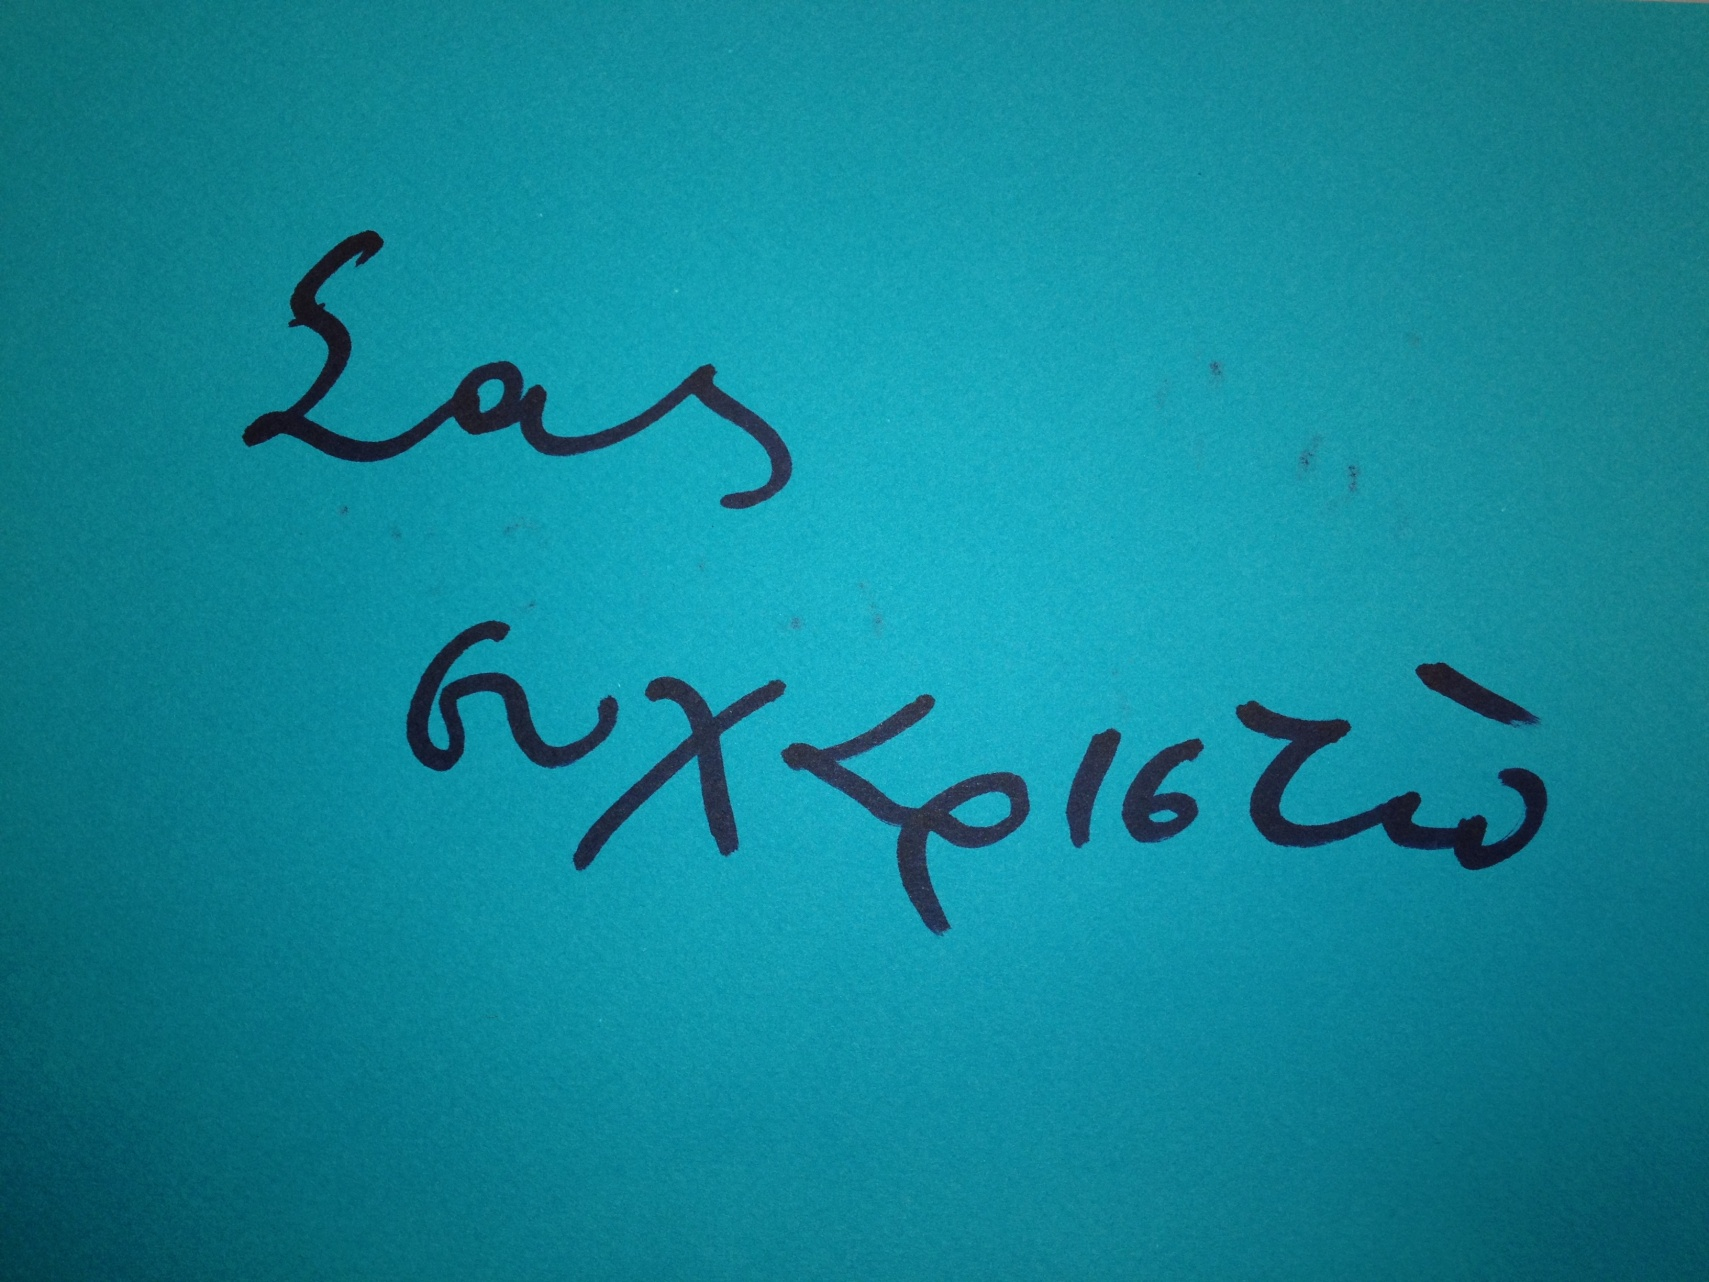 Σας
ευχαριστὼ